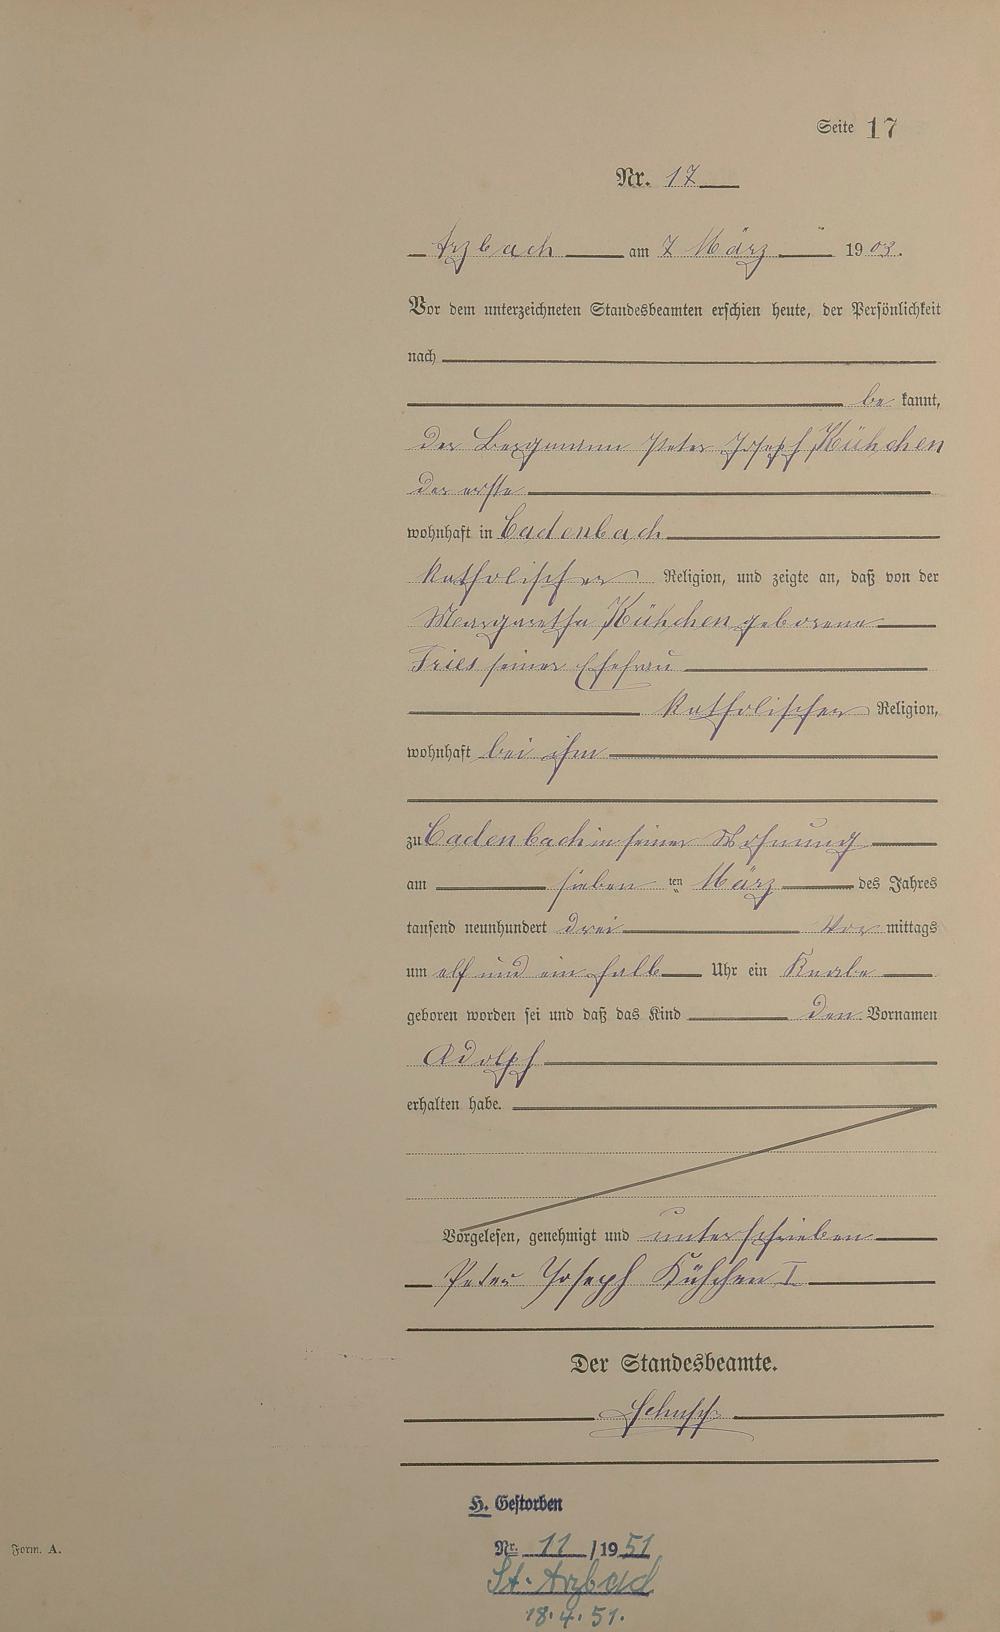 Seite 17
Nr. 17
Arzbach am 7 März 1903.
Vor dem unterzeichneten Standesbeamten erschien heute, der Persönlichkeit
nach
be kannt,
der Bergmann Peter Joseph Kühchen
der erste
wohnhaft in Cadenbach
katholischer Religion, und zeigte an, daß von der
Margaretha Kühchen geborene
Fries seiner Ehefrau
katholischer Religion,
wohnhaft bei ihm
zu Cadenbach in seiner Wohnung
am sieben ten März des Jahres
tausend neunhundert drei Vor mittags
um elf und ein halb Uhr ein Knabe
geboren worden sei und daß das Kind den Vornamen
Adolph
erhalten habe.
Vorgelesen, genehmigt und unterschrieben
Peter Joseph Kühchen I
Der Standesbeamte.
Schupp
H. Gestorben
Form. A.
Nr. 11 /1951
St. Arzbach
18.4.51.